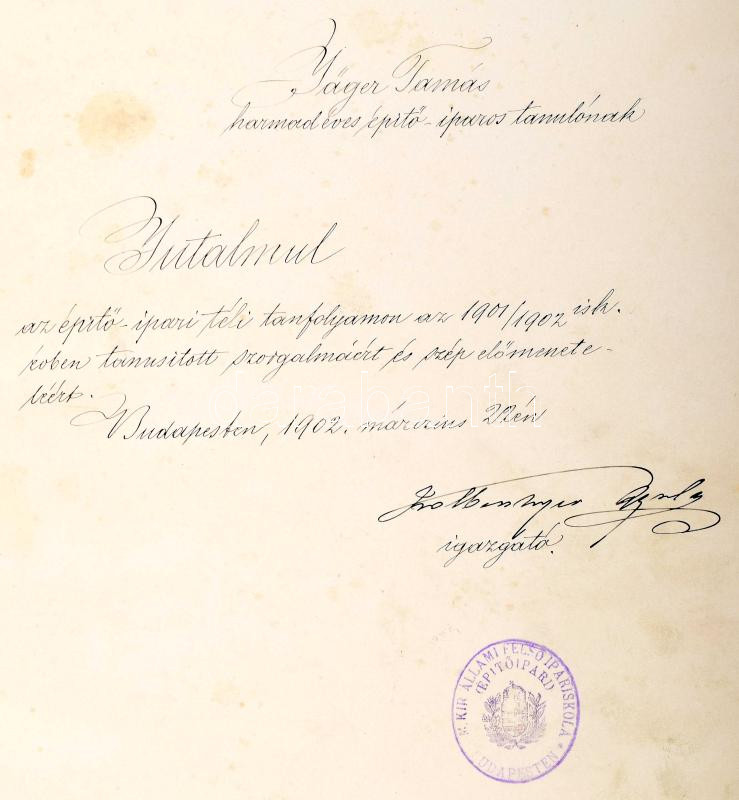 Jäger Tamás
harmadéves építő-iparos tanulónak
Jutalmul
az építő-ipari téli tanfolyamon az 1901/1902 isk.
évben tanusitott szorgalmáért és szép előmenete-
léért.
Budapesten, 1902. márczius 22én
Gyula
igazgató.
M. KIR. ÁLLAMI FELSŐ IPARISKOLA
(ÉPITŐIPARI)
BUDAPESTEN